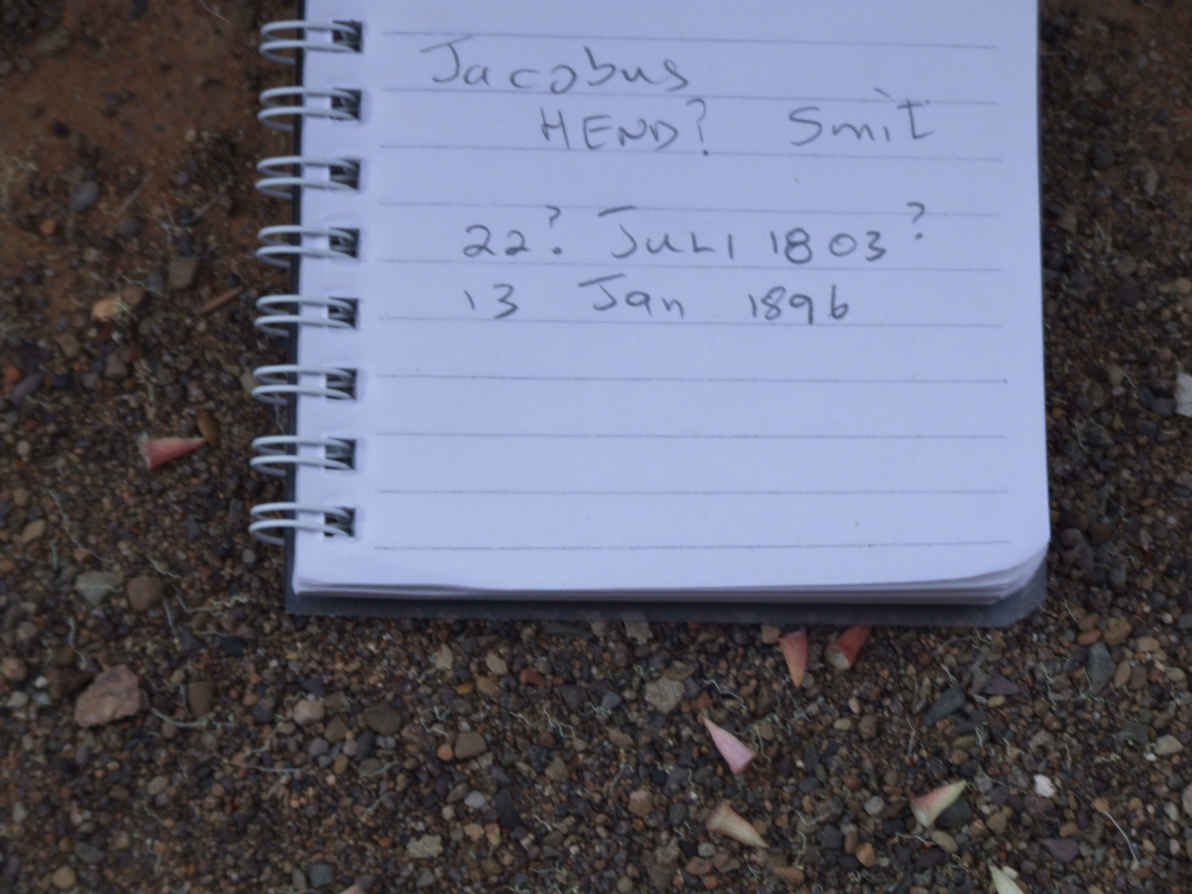 Jacobus
HEND? Smit
22? JULI 1803?
13 Jan 1896